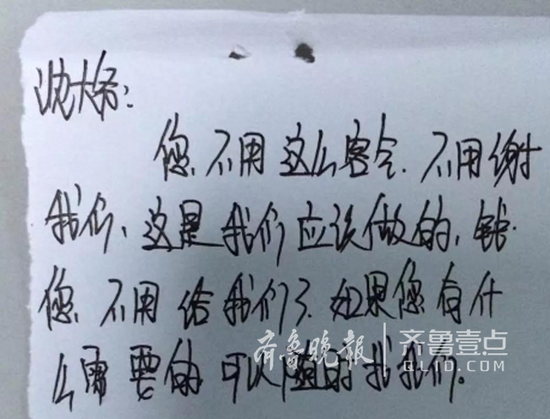 沈大爷:
您不用这么客气.不用谢
我们、这是我们应该做的,钱
您不用给我们了.如果您有什
么需要的可以随时找我们.
齐鲁晚报 齐鲁壹点
QLID.COM